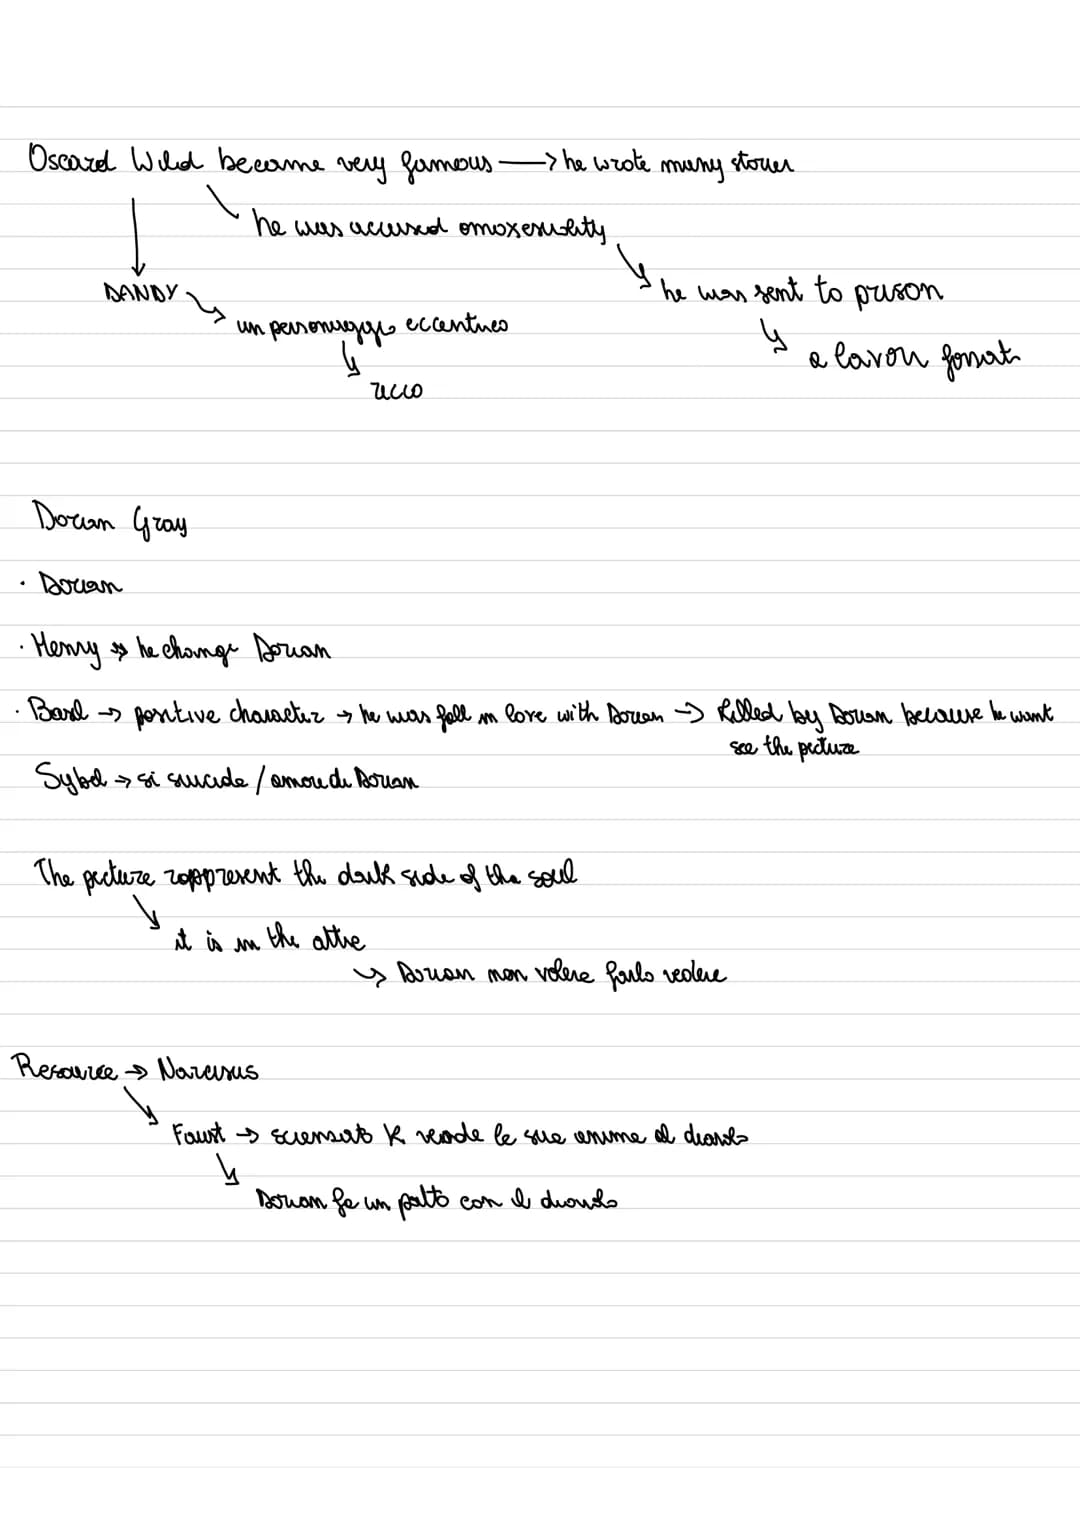 Oscard Wild became very famous → he wrote many storie
he was accused omosexuality
DANDY
he was sent to prison
un personaggio eccentrico
a lavori forzati
ricco
Dorian Gray
· Dorian
· Henry → he change Dorian
· Basil → positive character → he was fall in love with Dorian → killed by Dorian because he want
see the picture
Sybil → si suicide / amore di Dorian
The picture rappresent the dark side of the soul
it is in the attic
→ Dorian non volere farlo vedere
Resource → Narcisus
Faust → scienziato k vende la sua anima al diavolo
Dorian fa un patto con il diavolo